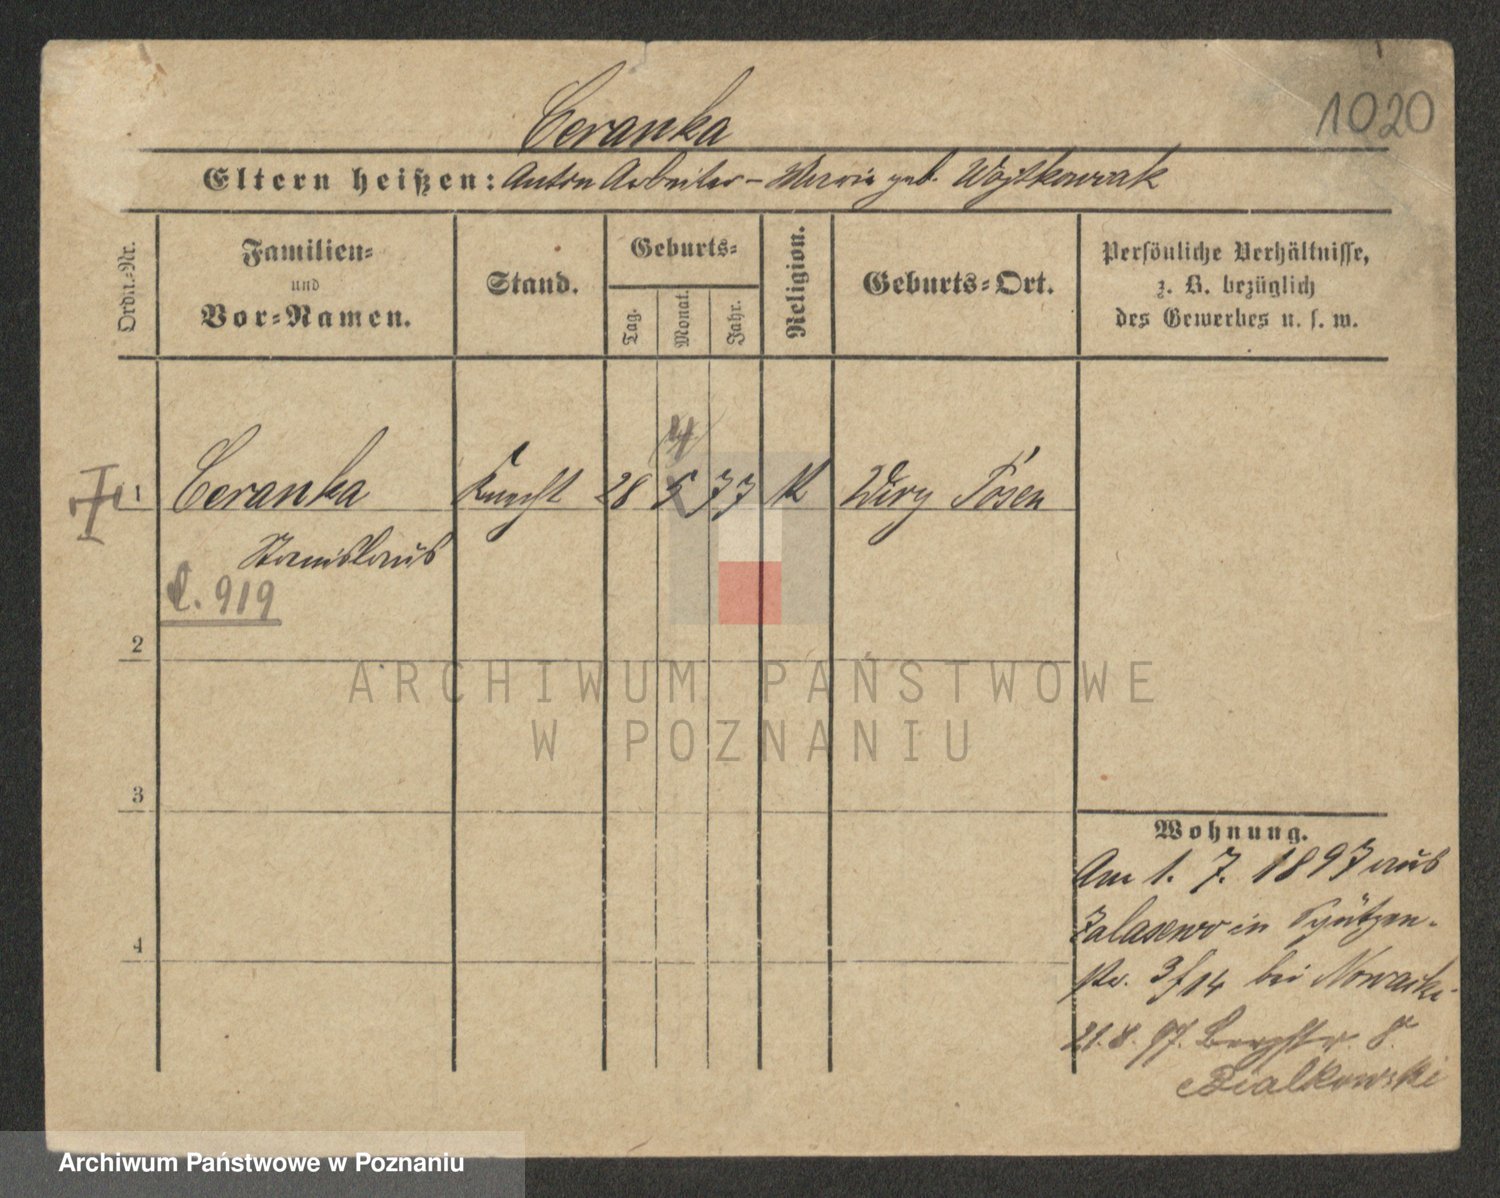 1020
Ceranka
Eltern heißen: Anton Arbeiter – Maria geb. Woytkowiak
Ordn.-Nr.
Familien-
und
Vor-Namen.
Stand.
Geburts-
Tag.
Monat.
Jahr.
Religion.
Geburts-Ort.
Persönliche Verhältnisse,
z. B. bezüglich
des Gewerbes u. s. w.
4
1 Ceranka Knecht 28 5 77 K Wiry Posen
Stanislaus
C. 919
2
ARCHIWUM PAŃSTWOWE
W POZNANIU
3
Wohnung.
Am 1. 7. 1897 aus
Zalasewo in Schützen-
str. 3/14 bei Nowacki.
4
21.8.97. Bergstr. 8.
Bialkowski
Archiwum Państwowe w Poznaniu